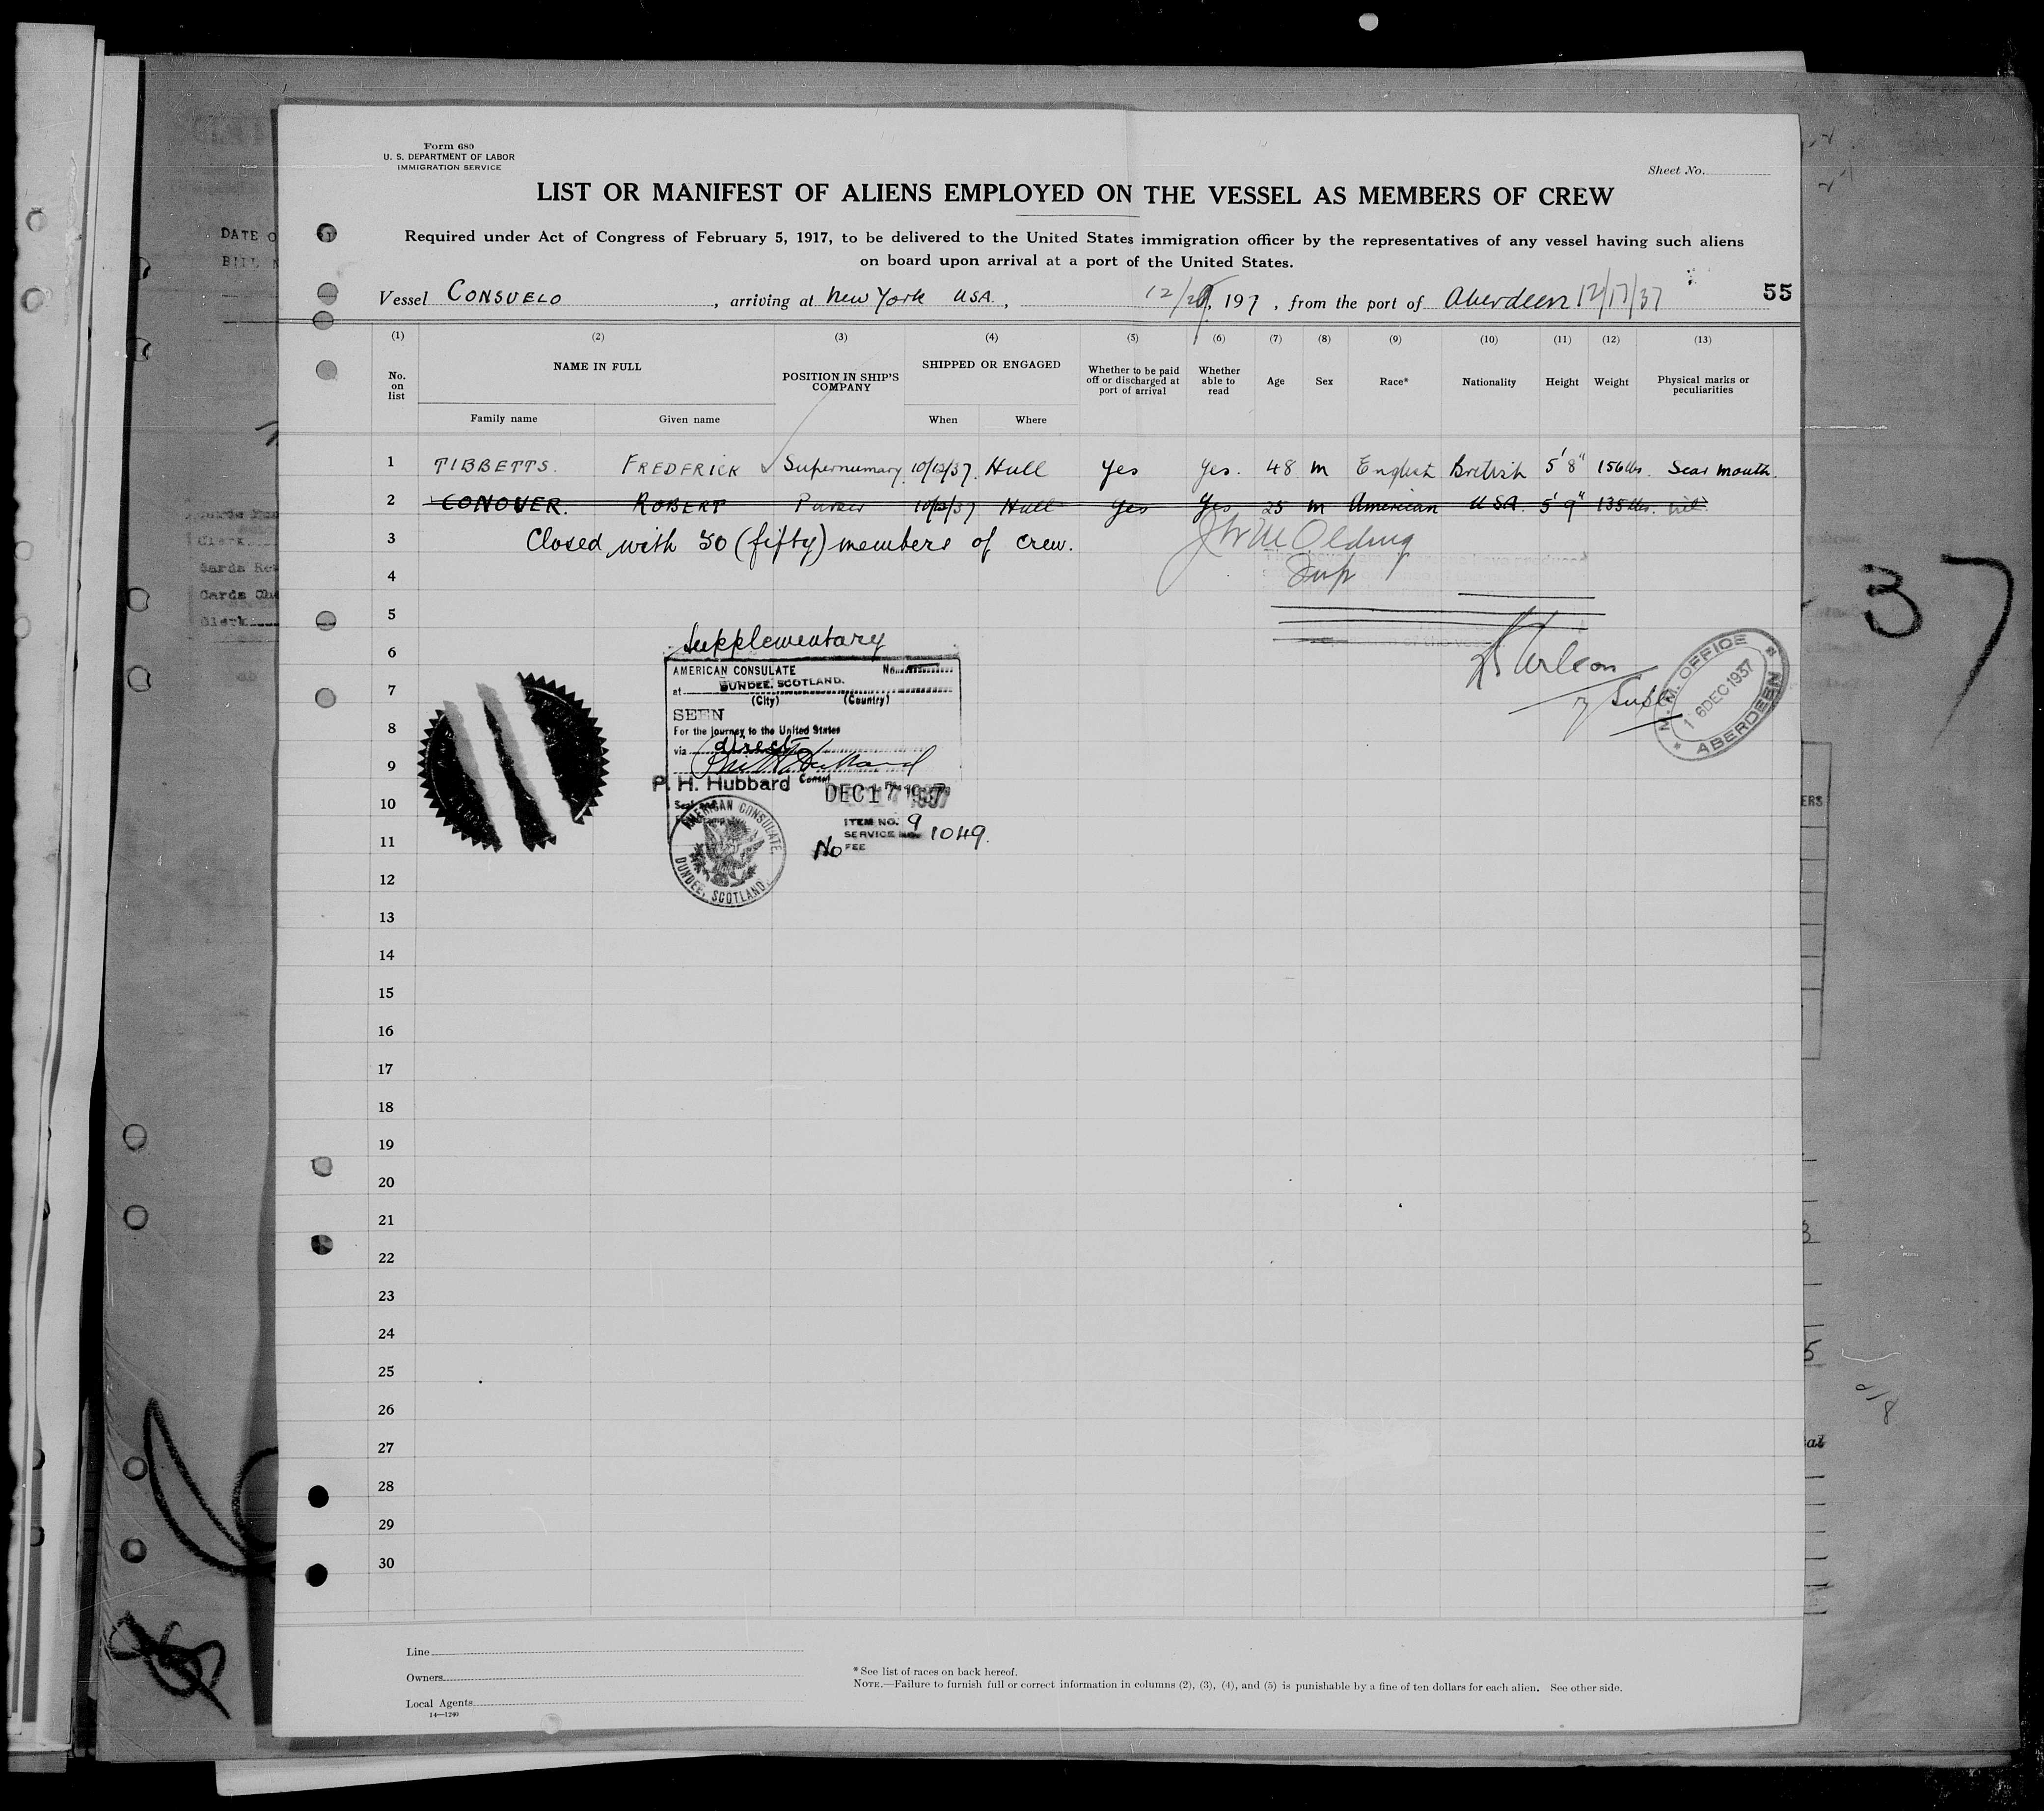 Form 680
U. S. DEPARTMENT OF LABOR
IMMIGRATION SERVICE
Sheet No.
LIST OR MANIFEST OF ALIENS EMPLOYED ON THE VESSEL AS MEMBERS OF CREW
Required under Act of Congress of February 5, 1917, to be delivered to the United States immigration officer by the representatives of any vessel having such aliens
on board upon arrival at a port of the United States.
DATE O
BILL
Vessel CONSUELO, arriving at New York USA., 12/29, 1937, from the port of Aberdeen 12/17/37
55
(1) (2) (3) (4) (5) (6) (7) (8) (9) (10) (11) (12) (13)
No. on list NAME IN FULL POSITION IN SHIP'S COMPANY SHIPPED OR ENGAGED Whether to be paid off or discharged at port of arrival Whether able to read Age Sex Race* Nationality Height Weight Physical marks or peculiarities
Family name Given name When Where
1 TIBBETTS. FREDERICK Supernumary 10/12/37. Hull Yes Yes. 48 m English British 5'8" 156lbs. Scar mouth.
2 CONOVER. ROBERT Purser 10/12/37 Hull Yes Yes 25 m American USA. 5'9" 135lbs. nil.
3 Closed with 50 (fifty) members of crew.
4 Sup
5
6
7
8
9
10
11
12
13
14
15
16
17
18
19
20
21
22
23
24
25
26
27
28
29
30
Supplementary
AMERICAN CONSULATE No.
at DUNDEE, SCOTLAND.
(City) (Country)
SEEN
For the journey to the United States
via direct
P. H. Hubbard Consul
DEC 17 1937
AMERICAN CONSULATE
DUNDEE, SCOTLAND
ITEM NO. 9
SERVICE NO. 1049.
No FEE
M.M. OFFICE
16 DEC 1937
ABERDEEN
37
Line
Owners
Local Agents
14—1240
* See list of races on back hereof.
NOTE.—Failure to furnish full or correct information in columns (2), (3), (4), and (5) is punishable by a fine of ten dollars for each alien. See other side.